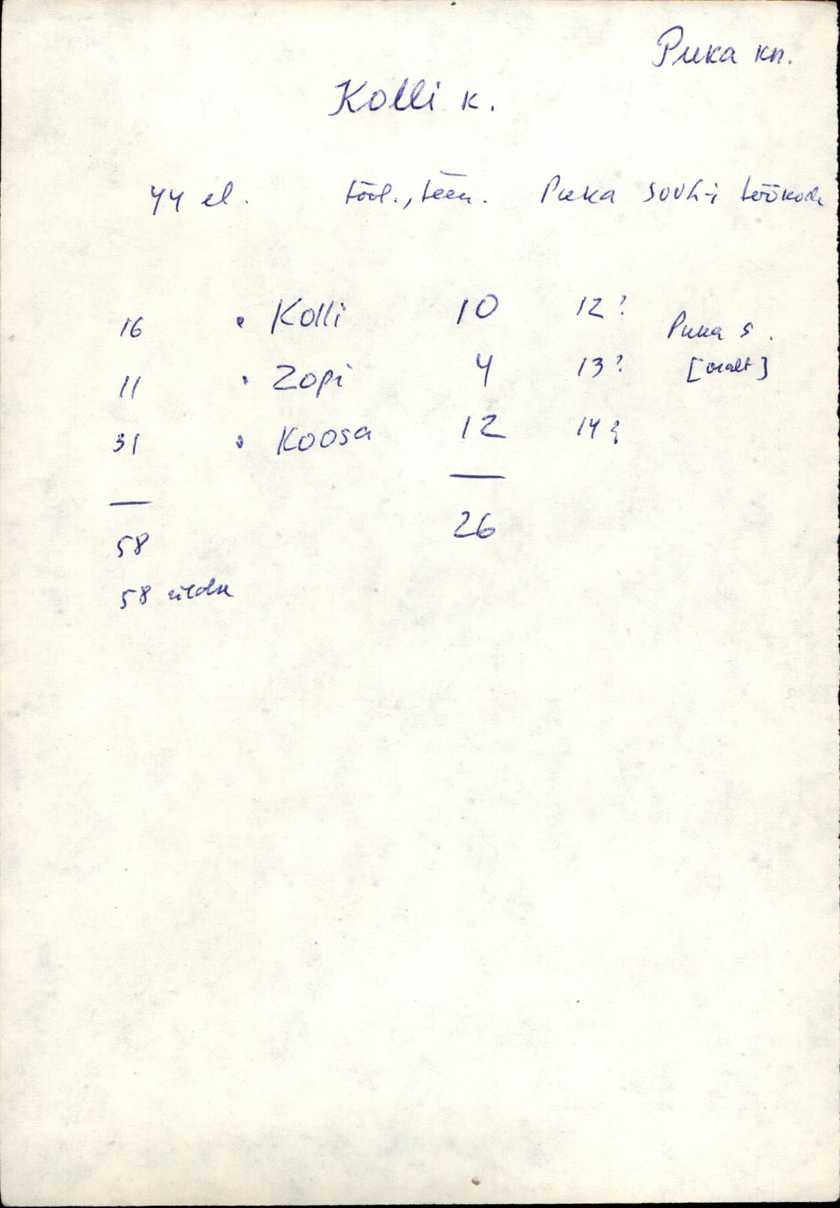 Puka kn.
Kolli k.
44 el. tööl., teen. Puka sovh-i töökoda
16 • Kolli 10 12?
Puka s.
11 • Zopi 4 13? [osalt]
31 • Koosa 12 14?
58 26
58 üldse